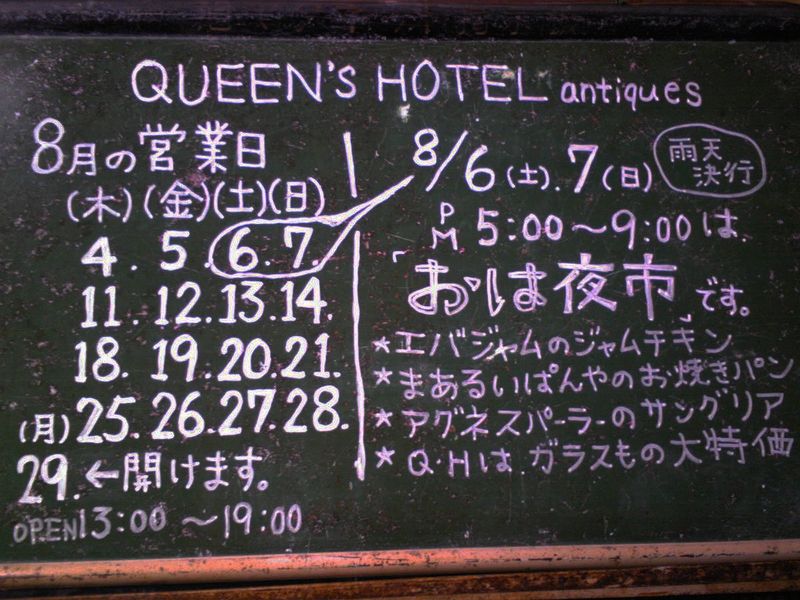 QUEEN'S HOTEL antiques
8月の営業日
(木)(金)(土)(日)
4. 5. 6. 7.
11. 12. 13. 14.
18. 19. 20. 21.
25. 26. 27. 28.
(月)
29. ←開けます。
OPEN 13:00 〜19:00
8/6(土). 7(日)
雨天
決行
PM 5:00〜9:00は、
「おは夜市」です。
★エバジャムのジャムチキン
★まあるいぱんやのお焼きパン
★アグネスパーラーのサングリア
★Q・Hは ガラスもの大特価